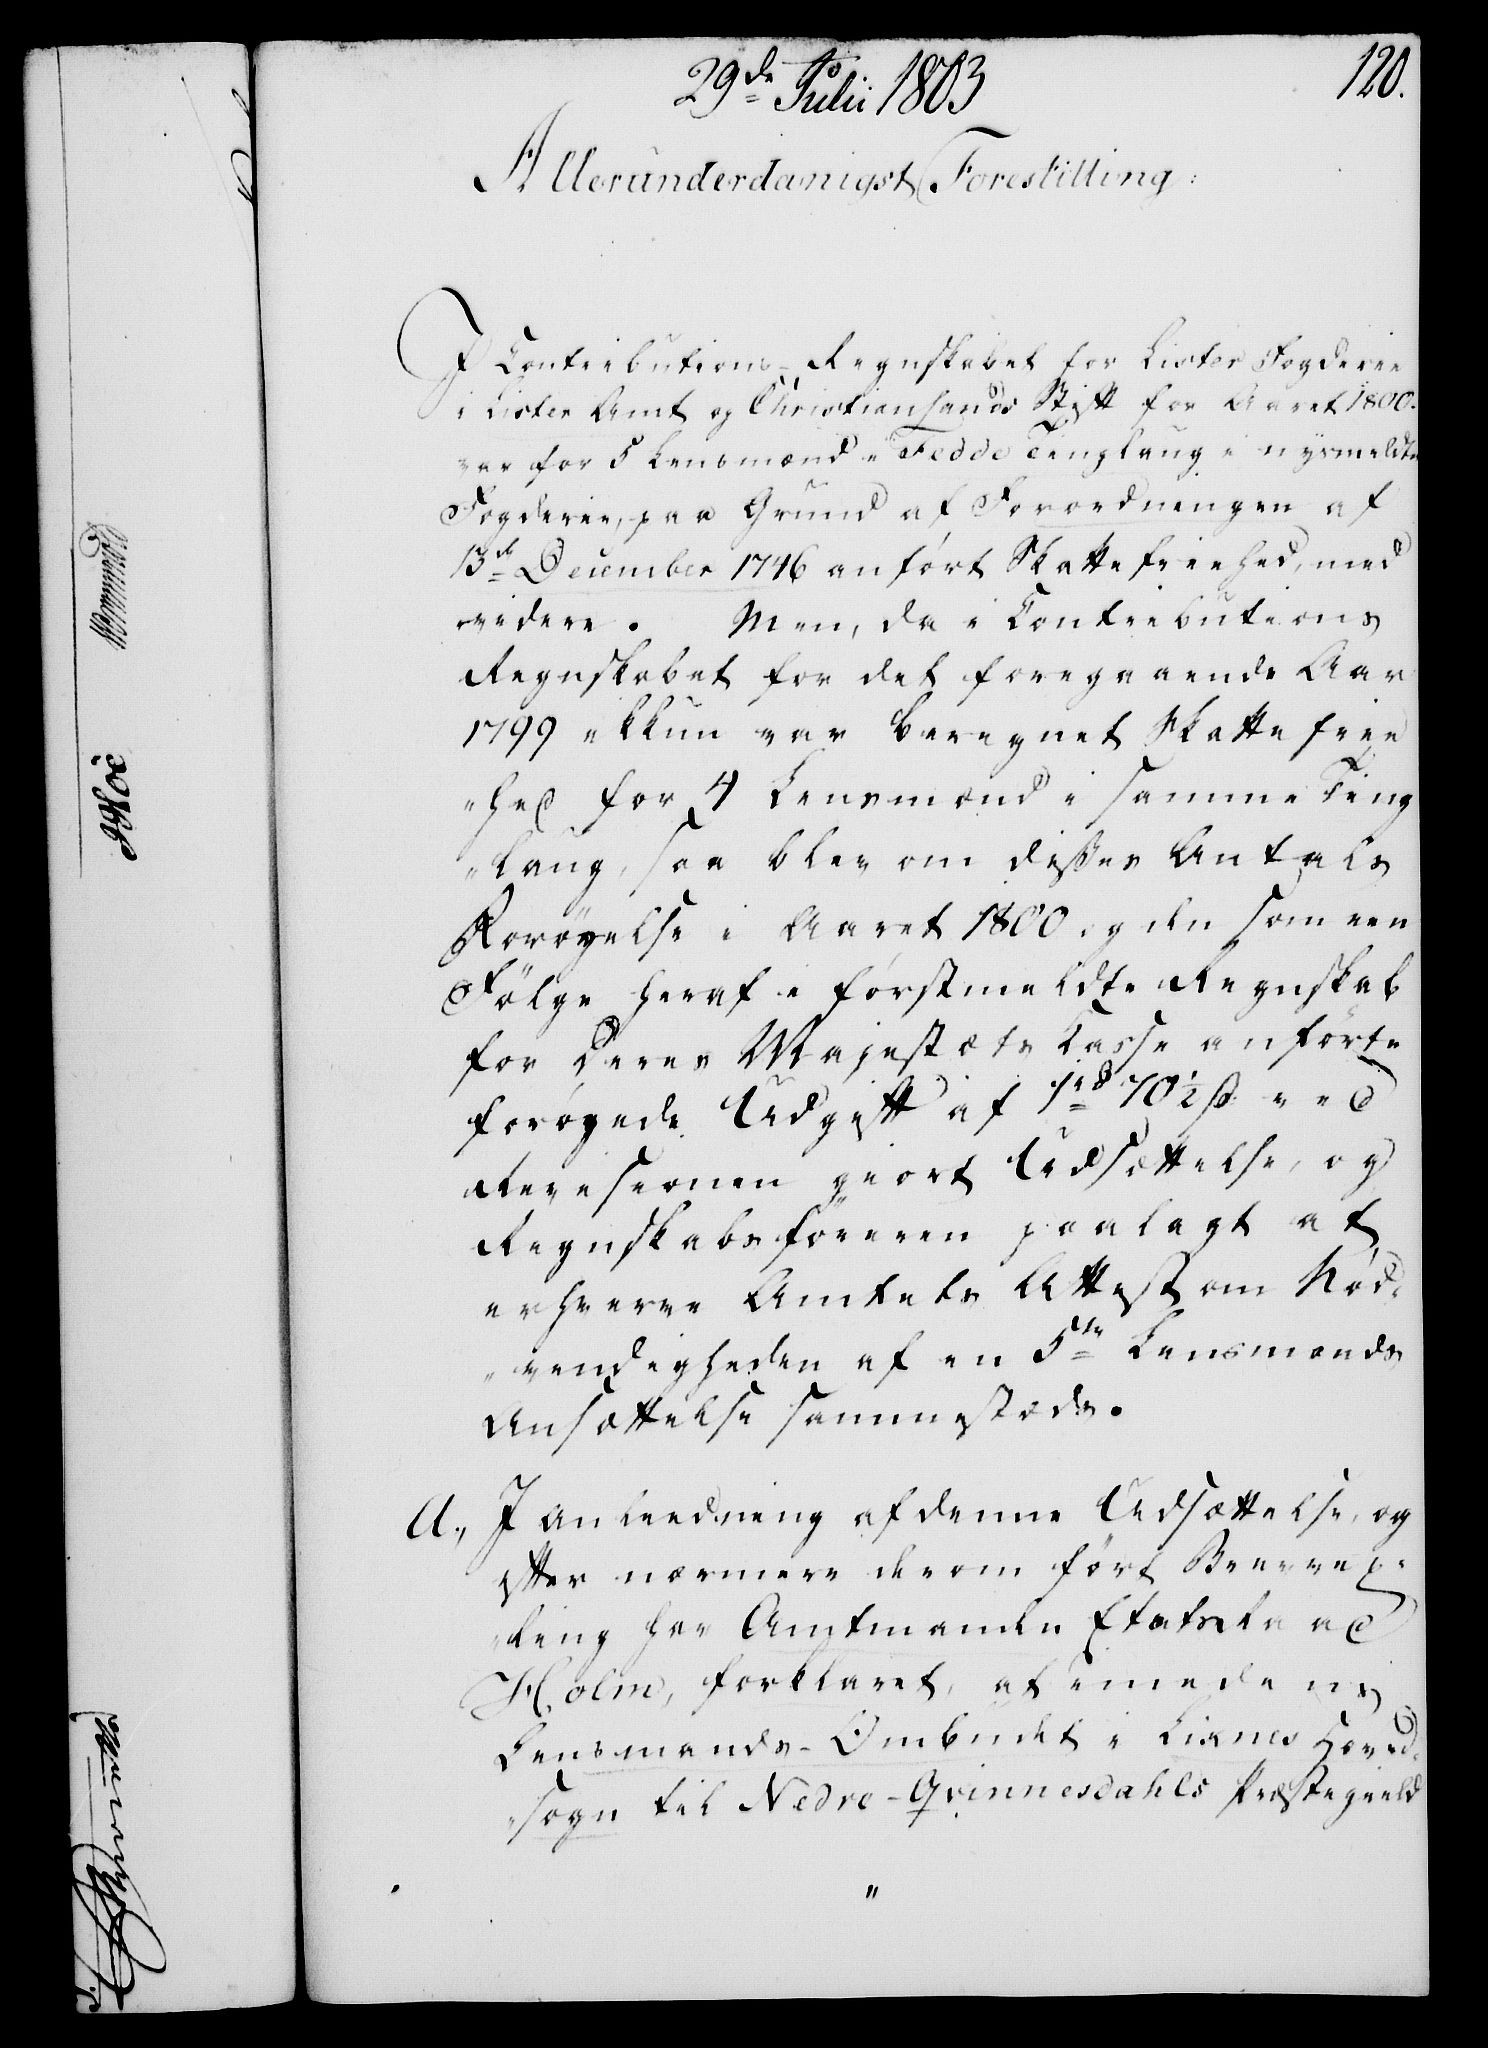 29de Julii 1803
120.
Allerunderdanigst Forestilling:
I Contributions-Regnskabet for Lister Fogderie
i Lister Amt og Christiansands Stift for Aaret 1800.
var for 5 Lensmænd i Fedde Tinglaug i nysmeldte
Fogderie, paa Grund af Forordningen af
13de December 1746 anført Skattefriehed, med
videre. Men, da i Contributions
Regnskabet for det foregaaende Aar
1799 ikkun var beregnet Skattefrie
"hed for 4 Lensmænd i samme Ting
"laug, saa blev om disses Antals
Forøyelse i Aaret 1800. og den som een
Følge heraf i førstmeldte Regnskab
for Deres Majestæts Casse anførte
forøgede Udgift af 1rd 70½ s ved
Revisionen giort Udsættelse, og
Regnskabsføreren paalagt at
erhverve Amtets Attest om Nød-
"vendigheden af en 5te Lensmands
Ansættelse sammestæds.
A., I Anleedning af denne Udsættelse, og
efter nærmere derom ført Brevvex-
"ling har Amtmanden Etatsraad
Holm, forklaret, at imedens
Lensmands-Ombudet i Lisnes Hoved-
"sogn til Nedre-Qvinnesdahls Præstegield
"
Wormskiold